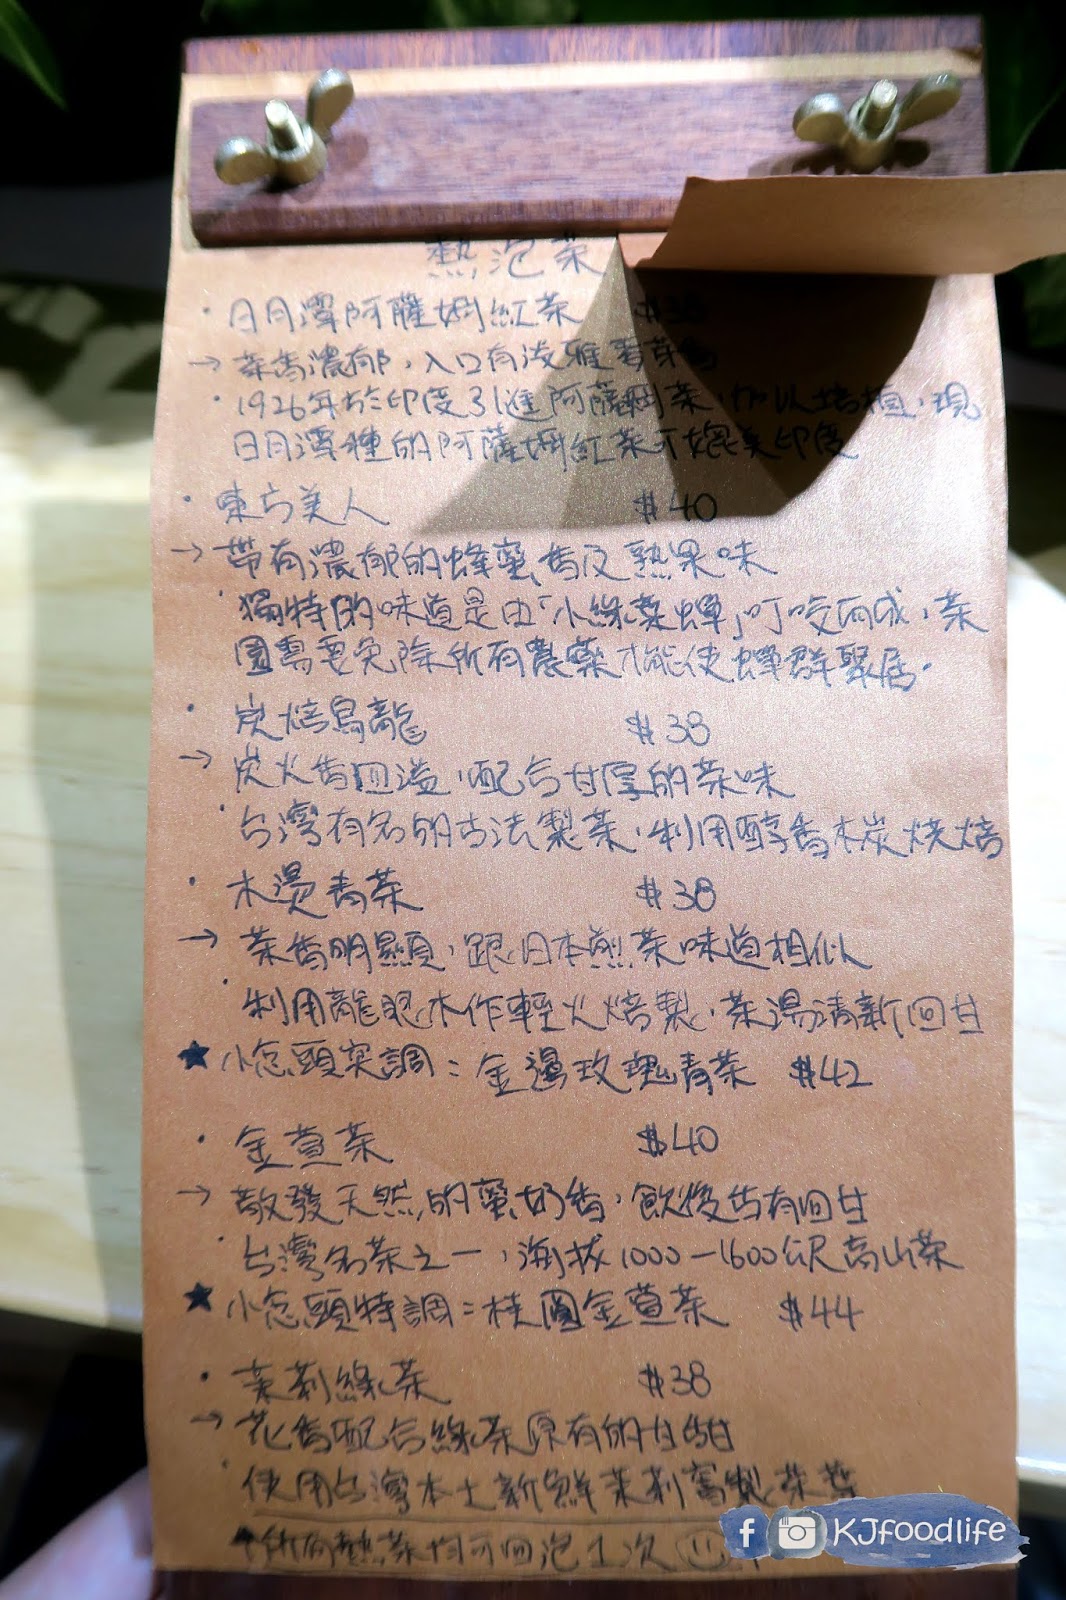 熱泡茶
· 日月潭阿薩姆紅茶 $38
→ 茶香濃郁，入口有淡雅麥芽香
· 1926年於印度引進阿薩姆茶，加以培植，現
日月潭種的阿薩姆紅茶不媲美印度
· 東方美人 $40
→ 帶有濃郁的蜂蜜香及熟果味
· 獨特的味道是由「小綠葉蟬」叮咬而成，茶
園需要免除所有農藥才能使蟬群聚居。
· 炭焙烏龍 $38
→ 炭火香回溢，配合甘厚的茶味
· 台灣有名的古法製茶，利用醇香木炭燒焙
· 木燙青茶 $38
→ 茶香明顯，跟日本煎茶味道相似
· 利用龍眼木作輕火焙製，茶湯清新回甘
★ 小念頭突調：金邊玫瑰青茶 $42
· 金萱茶 $40
→ 散發天然的蜜奶香，飲後古有回甘
· 台灣名茶之一，海拔1000-1600公尺高山茶
★ 小念頭特調：桂圓金萱茶 $44
· 茉莉綠茶 $38
→ 花香配合綠茶原有的甘甜
· 使用台灣本土新鮮茉莉窨製茶葉
*所有熱茶均可回泡1次
KJfoodlife